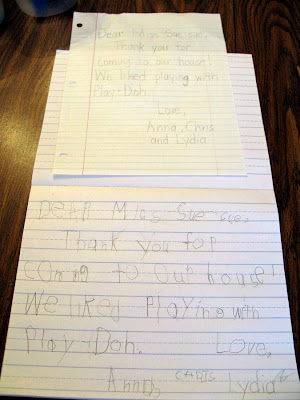 Dear Miss Sue-sie,
Thank you for
coming to our house!
We liked playing with
Play-Doh.
Love,
Anna, Chris
and Lydia
Dear Miss Sue-sie,
Thank you for
coming to our house!
We liked Playing with
Play-Doh. Love,
Anna CHRIS Lydia